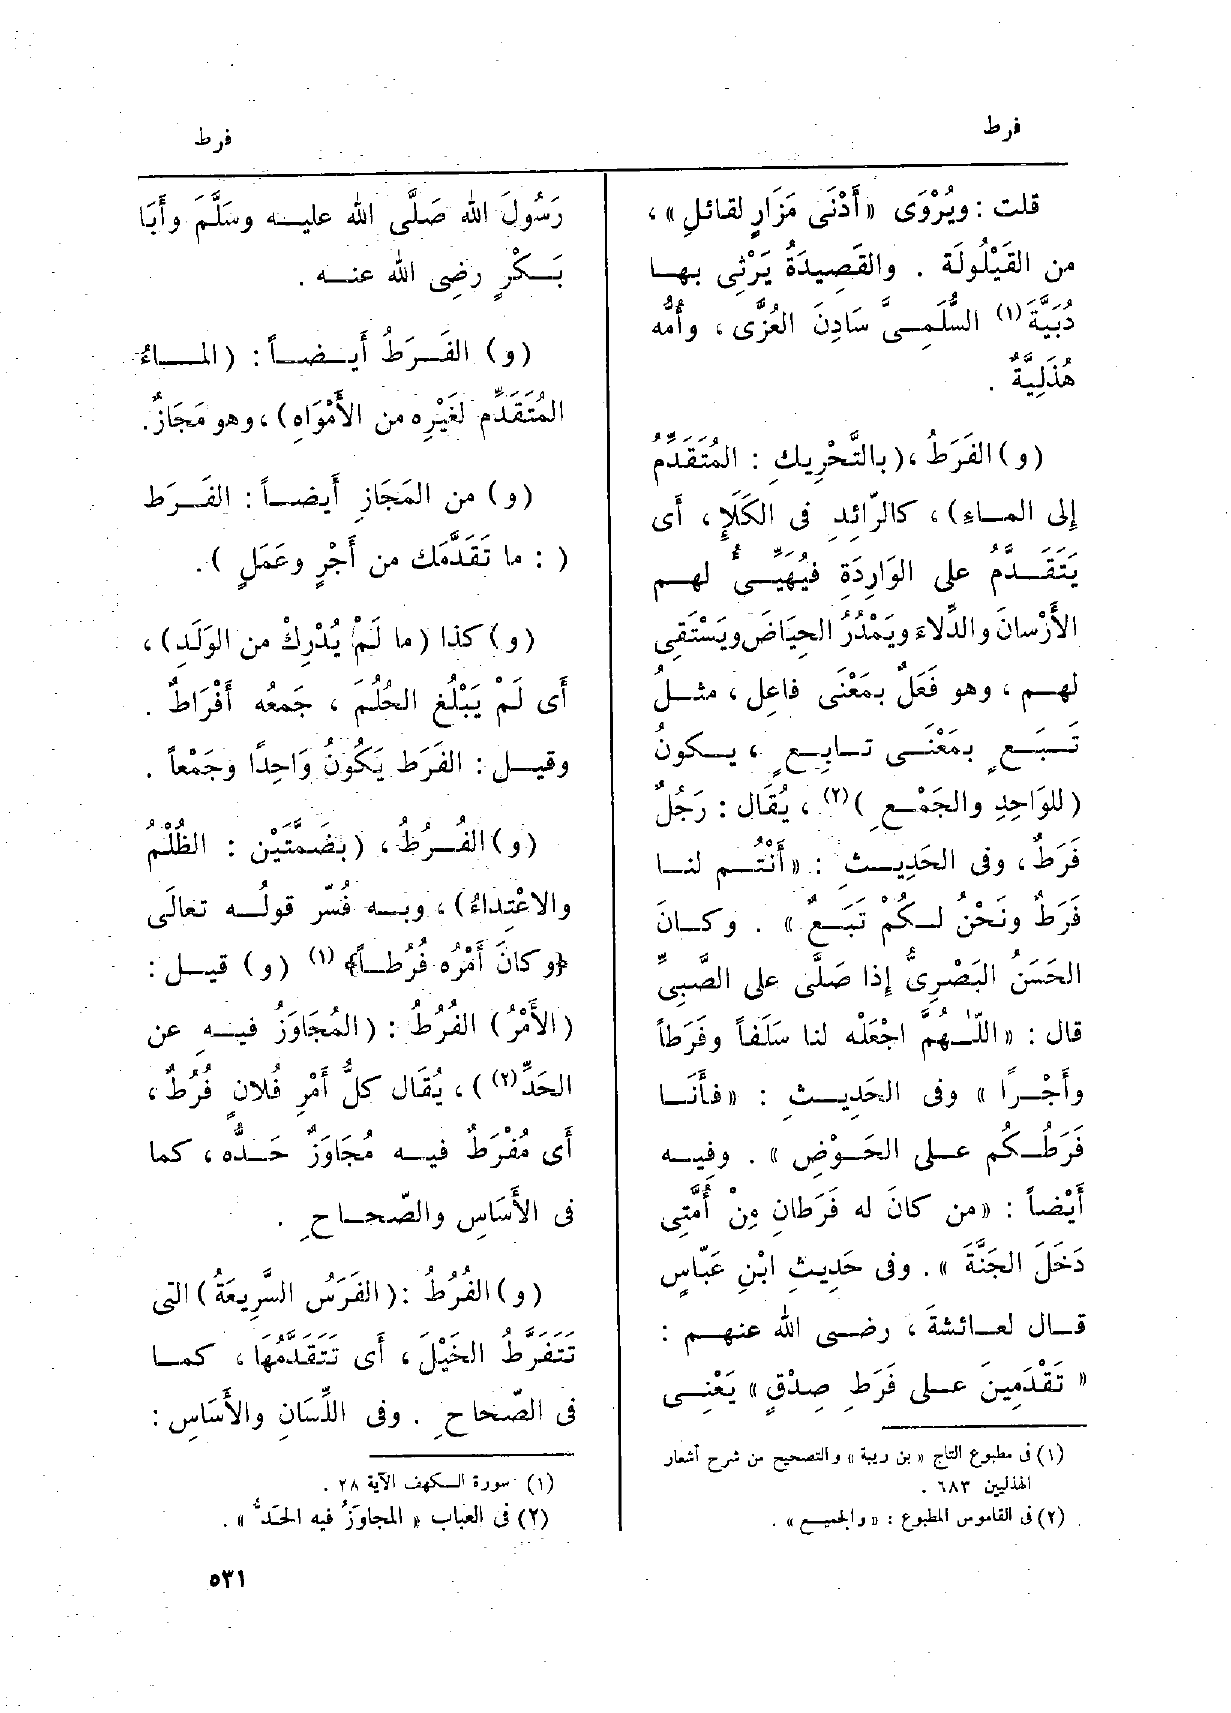 فرط
فرط
قلت : ويُرْوَى «أَدْنَى مَزَارٍ لقائلِ» ،
من القَيْلُولَة . والقَصِيدَةُ يَرْثِى بهـا
دُبَيَّةَ(١) السُّلَمِـىَّ سَادِنَ العُزَّى ، وأُمُّه
هُذَلِيَّةٌ .
(و) الفَرَطُ ،(بالتَّحْرِيكِ : المُتَقَدِّمُ
إلى المـاءِ) ، كالرّائِدِ فى الكَلَإِ ، أَى
يَتَقَـدَّمُ على الوَارِدَةِ فيُهَيِّـىُٔ لهـم
الأَرْسانَ والدِّلاءَ ويَمْدُرُ الحِيَاضَ ويَسْتَقِى
لهـم ، وهو فَعَلٌ بمَعْنَى فاعِلٍ ، مثـلُ
تَبَـعٍ بمَعْنَـى تـابِـعٍ ، يـكونُ
(للوَاحِدِ والجَمْـعِ )(٢) ، يُقَال : رَجُلٌ
فَرَطٌ ، وفى الحَدِيـثِ : «أَنْتُـم لنـا
فَرَطٌ ونَحْنُ لـكُمْ تَبَـعٌ » . وكـانَ
الحَسَنُ البَصْرِىُّ إذا صَلَّى على الصَّبِىِّ
قال : «اللّٰـهُمَّ اجْعَلْه لنا سَلَفاً وفَرَطاً
وأَجْـرًا » وفى الحَدِيـثِ : «فأَنَـا
فَرَطُـكُم علـى الحَـوْضِ » . وفِيـه
أَيْضاً : «من كانَ له فَرَطانِ مِنْ أُمَّتِى
دَخَلَ الجَنَّةَ » . وفى حَدِيثِ ابْنِ عَبّاسٍ
قـال لعـائشةَ ، رضـى الله عنهـم :
« تَقْدَمِينَ علـى فَرَطِ صِدْقٍ » يَعْنِـى
(١) فى مطبوع التاج «بن ريبة» والتصحيح من شرح أشعار
الهذليين ٦٨٣ .
(٢) فى القاموس المطبوع : «والجميـع» .
رَسُولَ الله صَلَّى الله عليـه وسَلَّمَ وأَبَا
بَـكْرٍ رضِى الله عنـه .
(و) الفَـرَطُ أَيـضـاً : (المـاءُ
المُتَقَدِّم لغَيْرِه من الأَمْوَاهِ) ، وهو مَجَازٌ.
(و) من المَجَازِ أَيضـاً : الفَـرَط
( : ما تَقَدَّمَك من أَجْرٍ وعَمَلٍ ) .
(و) كذا (ما لَمْ يُدْرِكْ من الوَلَدِ) ،
أَى لَمْ يَبْلُغِ الحُلُمَ ، جَمعُه أَفْرَاطٌ .
وقيـل : الفَرَط يَكُونُ وَاحِدًا وجَمْعاً .
(و) الفُـرُطُ ، (بضَمَّتَيْن : الظُّلْمُ
والاعْتِداءُ) ، وبـه فُسّر قولُـه تعالَى
﴿وكانَ أَمْرُه فُرُطـاً﴾ (١) (و) قيـل :
(الأَمْرُ) الفُرُطُ : (المُجَاوَزُ فيـه عن
الحَدِّ(٢)) ، يُقَال كلُّ أَمْرِ فُلانٍ فُرُطٌ ،
أَى مُفْرَطٌ فيـه مُجَاوَزٌ حَـدُّه ، كما
فى الأَسَاسِ والصّحـاحِ .
(و) الفُرُطُ :(الفَرَسُ السَّرِيعَةُ) التى
تَتَفَرَّطُ الخَيْلَ ، أَى تَتَقَدَّمُهَا ، كمـا
فى الصّحاحِ . وفى اللِّسَانِ والأَسَاسِ :
(١) سورة الـكهف الآية ٢٨ .
(٢) فى العباب « المجاوَزُ فيه الحَدُّ » .
٥٣١